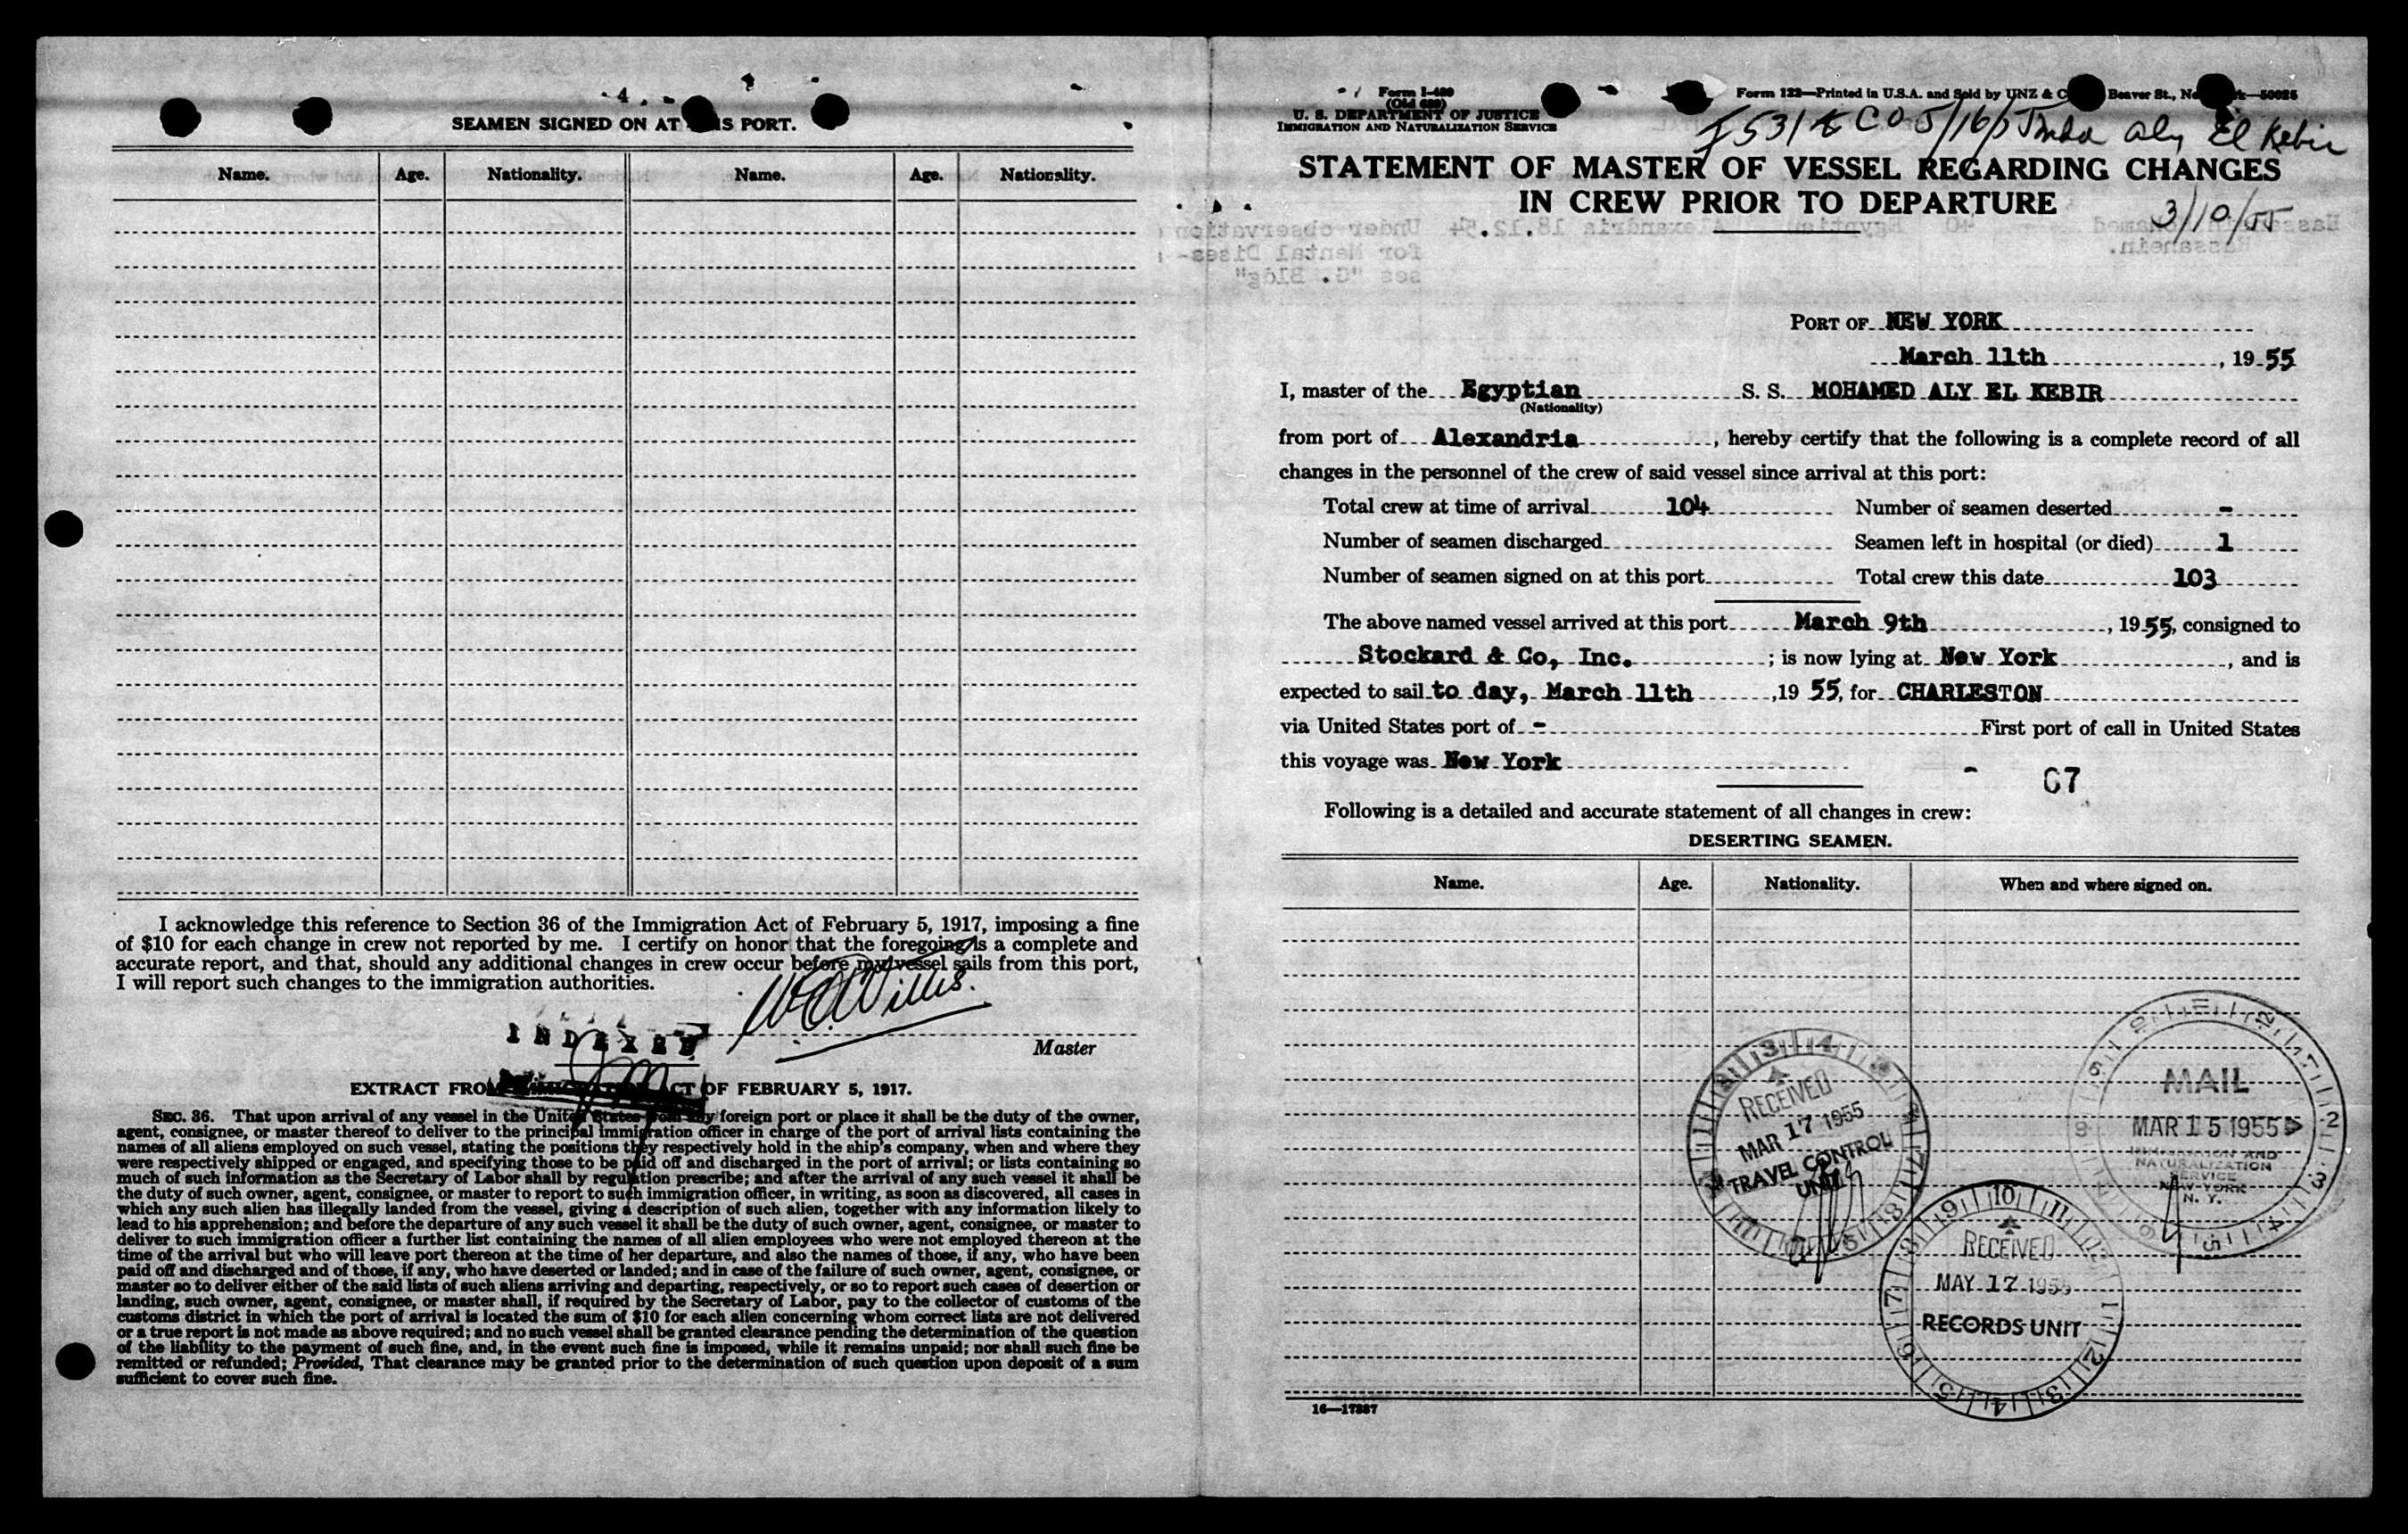 4
SEAMEN SIGNED ON AT IS PORT.
Name. Age. Nationality. Name. Age. Nationality.
I acknowledge this reference to Section 36 of the Immigration Act of February 5, 1917, imposing a fine
of $10 for each change in crew not reported by me. I certify on honor that the foregoing is a complete and
accurate report, and that, should any additional changes in crew occur before my vessel sails from this port,
I will report such changes to the immigration authorities.
Willis.
Master
INDEXED
EXTRACT FROM ACT OF FEBRUARY 5, 1917.
SEC. 36. That upon arrival of any vessel in the United States from any foreign port or place it shall be the duty of the owner,
agent, consignee, or master thereof to deliver to the principal immigration officer in charge of the port of arrival lists containing the
names of all aliens employed on such vessel, stating the positions they respectively hold in the ship's company, when and where they
were respectively shipped or engaged, and specifying those to be paid off and discharged in the port of arrival; or lists containing so
much of such information as the Secretary of Labor shall by regulation prescribe; and after the arrival of any such vessel it shall be
the duty of such owner, agent, consignee, or master to report to such immigration officer, in writing, as soon as discovered, all cases in
which any such alien has illegally landed from the vessel, giving a description of such alien, together with any information likely to
lead to his apprehension; and before the departure of any such vessel it shall be the duty of such owner, agent, consignee, or master to
deliver to such immigration officer a further list containing the names of all alien employees who were not employed thereon at the
time of the arrival but who will leave port thereon at the time of her departure, and also the names of those, if any, who have been
paid off and discharged and of those, if any, who have deserted or landed; and in case of the failure of such owner, agent, consignee, or
master so to deliver either of the said lists of such aliens arriving and departing, respectively, or so to report such cases of desertion or
landing, such owner, agent, consignee, or master shall, if required by the Secretary of Labor, pay to the collector of customs of the
customs district in which the port of arrival is located the sum of $10 for each alien concerning whom correct lists are not delivered
or a true report is not made as above required; and no such vessel shall be granted clearance pending the determination of the question
of the liability to the payment of such fine, and, in the event such fine is imposed, while it remains unpaid; nor shall such fine be
remitted or refunded; Provided, That clearance may be granted prior to the determination of such question upon deposit of a sum
sufficient to cover such fine.
Form I-489
(Old 689)
U. S. DEPARTMENT OF JUSTICE
IMMIGRATION AND NATURALIZATION SERVICE
Form 122—Printed in U.S.A. and Sold by UNZ & C Beaver St., Ne k—50025
Aly El Kebir
STATEMENT OF MASTER OF VESSEL REGARDING CHANGES
IN CREW PRIOR TO DEPARTURE
3/10/55
PORT OF NEW YORK
March 11th, 1955
I, master of the Egyptian S. S. MOHAMED ALY EL KEBIR
(Nationality)
from port of Alexandria, hereby certify that the following is a complete record of all
changes in the personnel of the crew of said vessel since arrival at this port:
Total crew at time of arrival 104 Number of seamen deserted -
Number of seamen discharged Seamen left in hospital (or died) 1
Number of seamen signed on at this port Total crew this date 103
The above named vessel arrived at this port March 9th, 1955, consigned to
Stockard & Co, Inc.; is now lying at New York, and is
expected to sail to day, March 11th, 1955, for CHARLESTON
via United States port of - First port of call in United States
this voyage was New York
67
Following is a detailed and accurate statement of all changes in crew:
DESERTING SEAMEN.
Name. Age. Nationality. When and where signed on.
RECEIVED
MAR 17 1955
TRAVEL CONTROL
UNIT
MAIL
MAR 15 1955
IMMIGRATION AND
NATURALIZATION
SERVICE
NEW YORK
N. Y.
RECEIVED
MAY 17 1955
RECORDS UNIT
16—17387